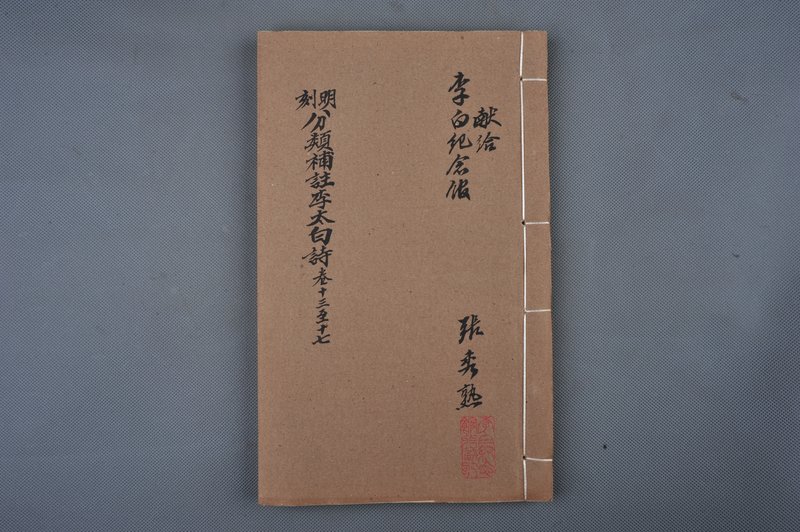 献给
李白纪念馆
张秀熟
明刻
分類補註李太白詩卷十三至十七